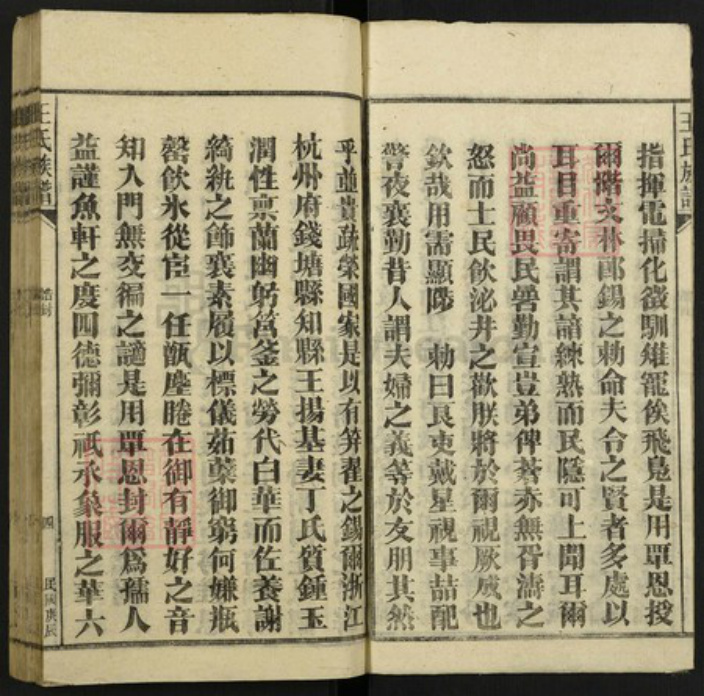 王氏族譜
指揮電掃化徵馴雉寵俟飛鳧是用覃恩授
爾階文林郎錫之勅命夫令之賢者多處以
耳目重寄謂其諳練熟而民隱可上聞耳爾
尚益顧畏民碞勤宣豈弟俾蒼赤無胥濤之
怒而士民飲泌井之歡朕將於爾視厥成也
欽哉用需顯陟 勅曰良吏戴星視事喆配
警夜襄勤昔人謂夫婦之義等於友朋其然
乎並貴疏榮國家是以有笄翟之錫爾浙江
杭州府錢塘縣知縣王揚基妻丁氏質鍾玉
潤性稟蘭幽躬筥釜之勞代白華而佐養謝
綺紈之飾襄素履以標儀茹蘖御窮何嫌瓶
罄飲氷從宦一任甑塵睠在御有靜好之音
知入門無交徧之讁是用覃恩封爾爲孺人
益謹魚軒之度四德彌彰祇承象服之華六
王氏族譜
誥封
四
民國庚辰